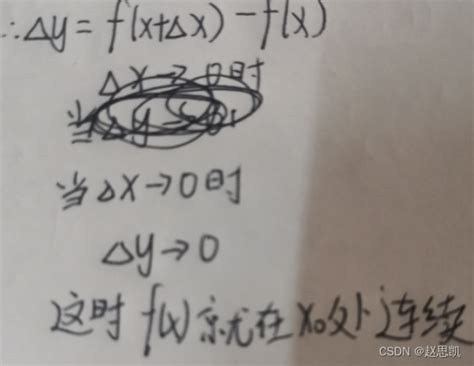 ∴△y = f(x+△x) - f(x)
△x→0时
当
当△x→0时
△y→0
这时 f(x) 就在 x₀处连续
CSDN @赵思凯